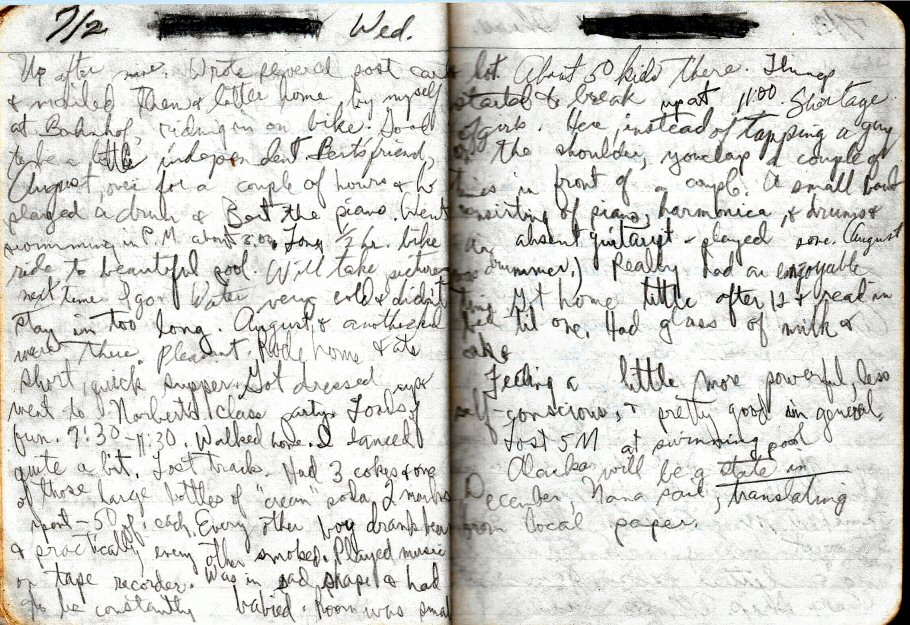 7/2 Wed.
Up after nine. Wrote several post cards
& mailed them & letter home by myself
at Bahnhof, riding in on bike. Good
to be a little independent. Bert's friend,
August, over for a couple of hours & he
played a drum & Bert the piano. Went
swimming in P.M. about 3:00. Long bike
ride to beautiful pool. Will take pictures
next time I go. Water very cold & didn't
stay in too long. August & another
were there. Pleasant. Rode home & ate
short, quick supper. Got dressed up &
went to Norbert's class party. Loads of
fun. 7:30-11:30. Walked home. I danced
quite a bit. Lost track. Had 3 cokes & one
of those large bottles of "cream" soda. 2 marks
spent - 50 pf. each. Every other boy drank beer
& practically every other smoked. Played music
on tape recorder. Was in sad shape & had
to be constantly babied. Room was small
lot. About 50 kids there. Things
started to break up at 11:00. Shortage
of girls. Here, instead of tapping a guy
on the shoulder, you clap a couple of
times in front of a couple. A small band
consisting of piano, harmonica, & drums &
an absent guitarist - played some. (August
drummer.) Really had an enjoyable
time. Got home little after 12 & read in
bed 'til one. Had glass of milk &
cake
Feeling a little more powerful, less
self-conscious, & pretty good in general.
Lost 5M at swimming pool
Alaska will be a state in
December, Nana said, translating
from local paper.